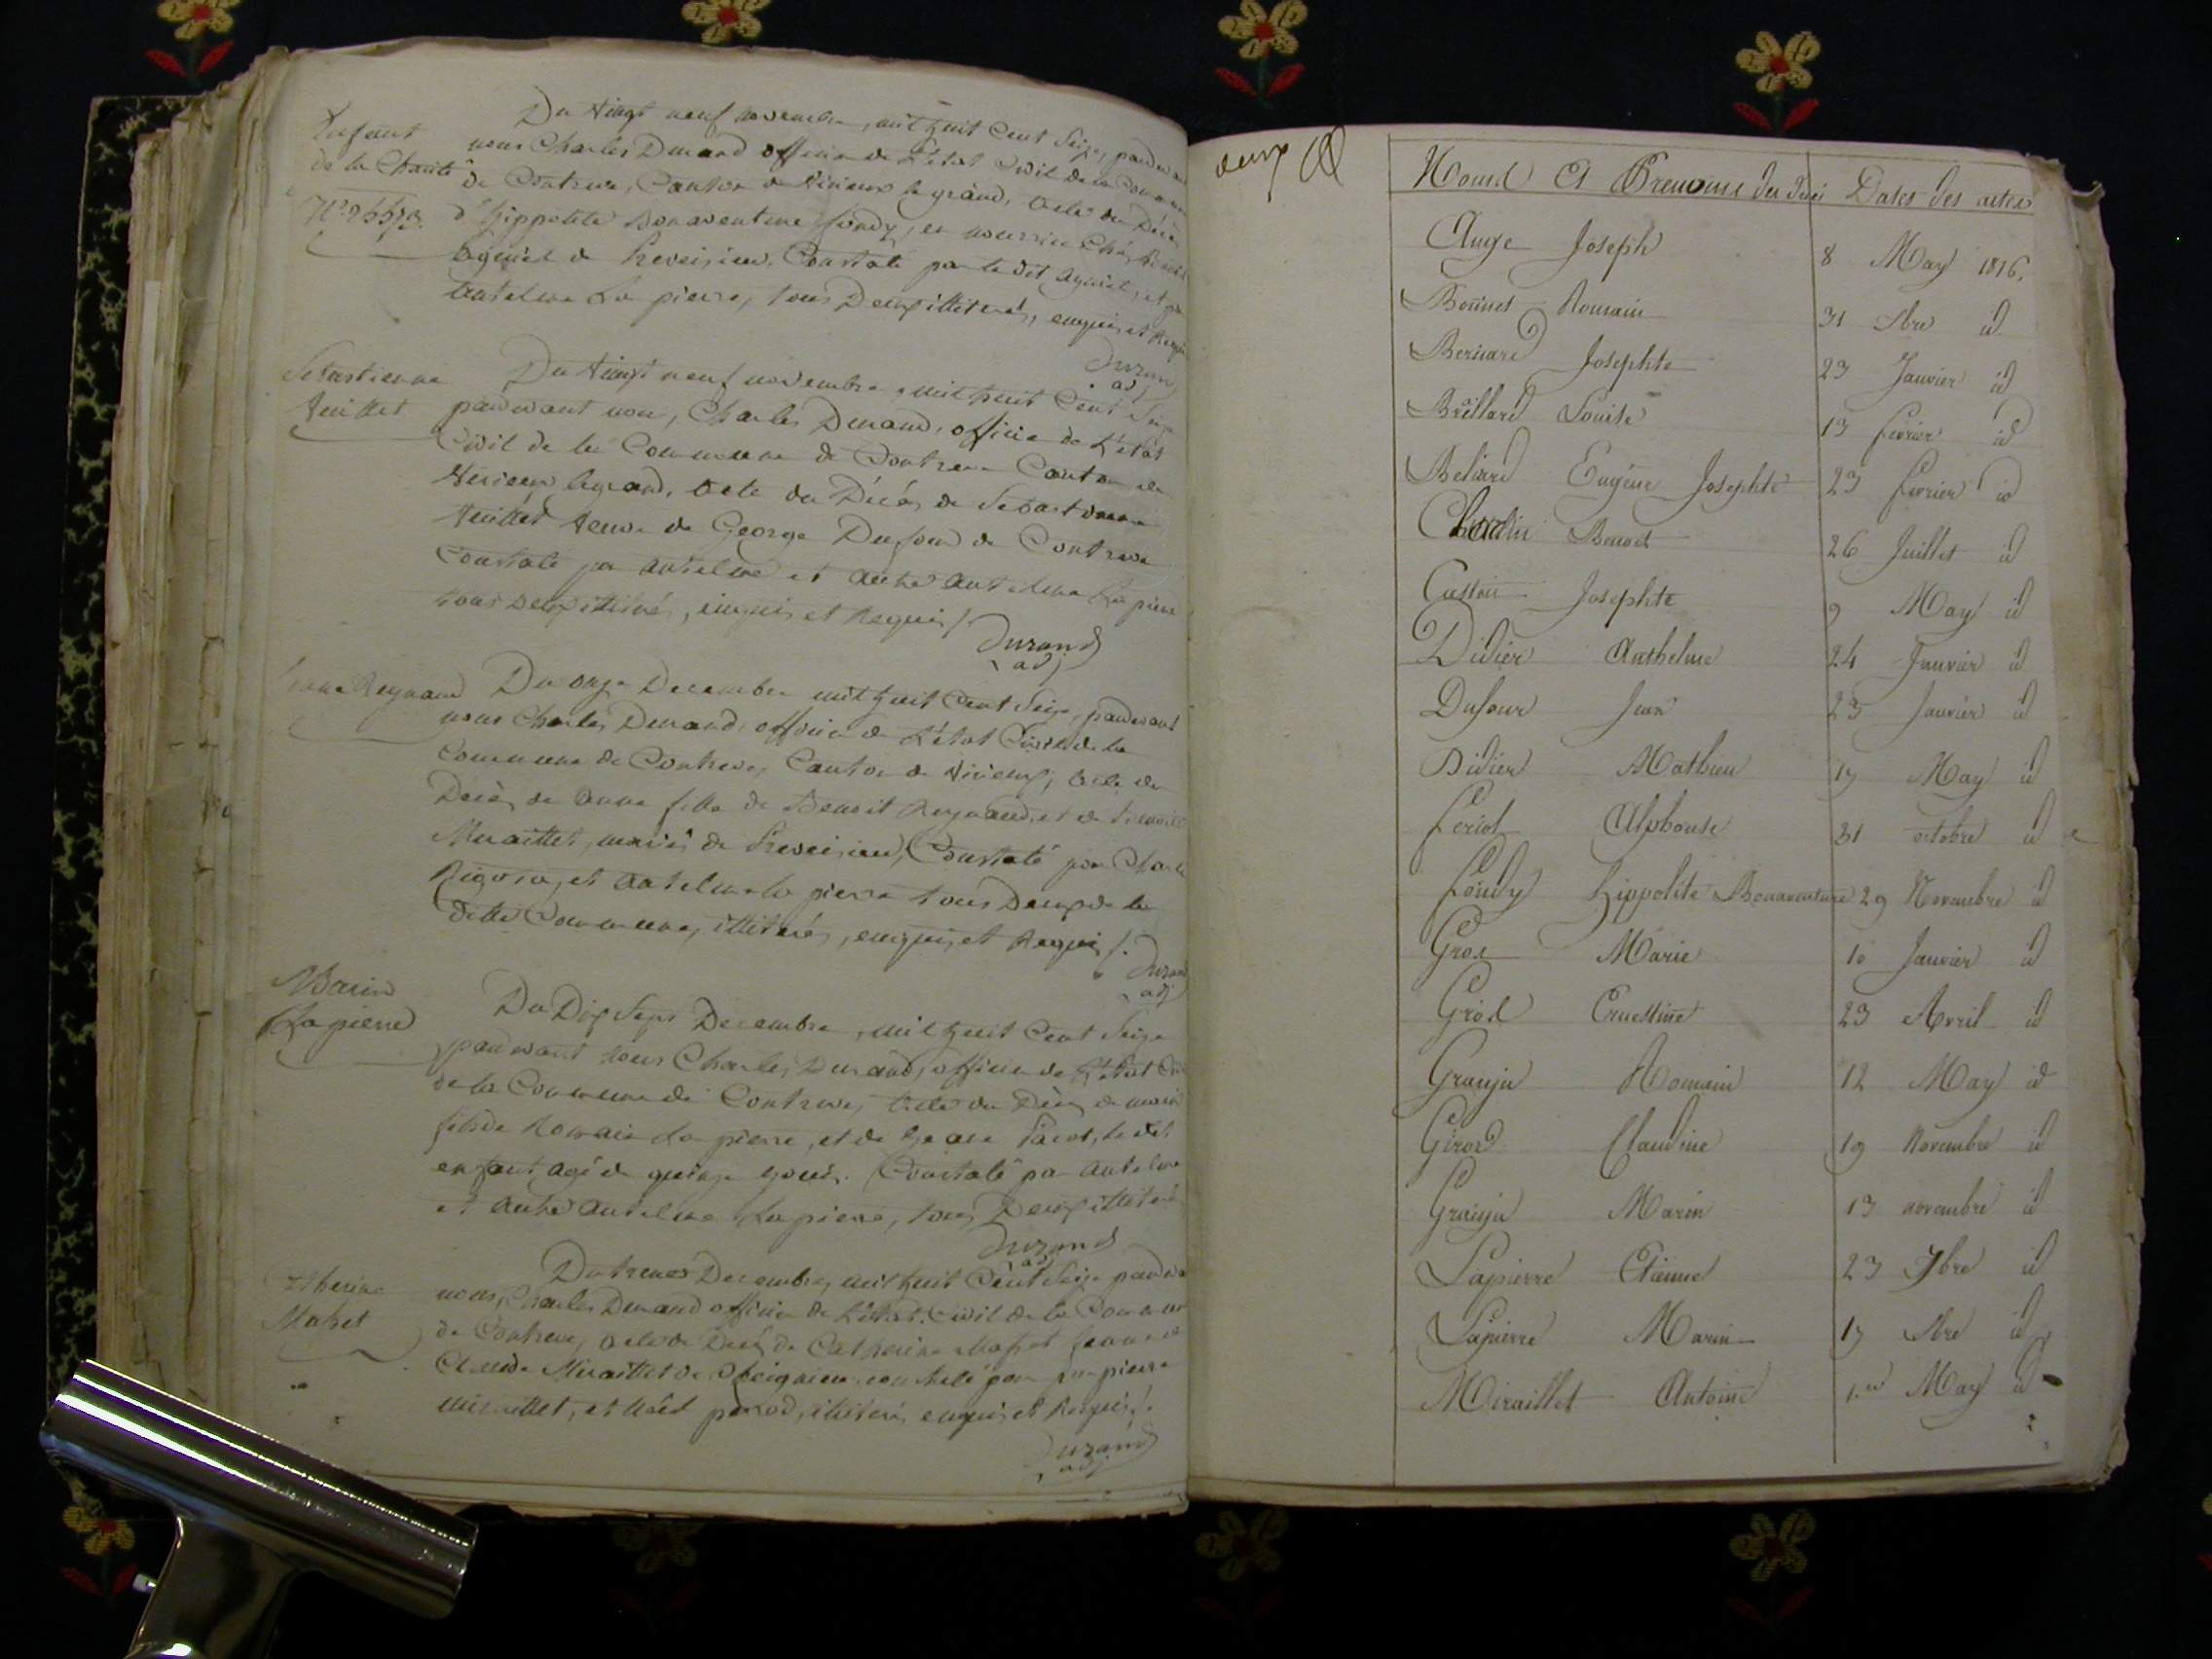 Enfant
de la Charité
Du vingt neuf novembre, mil huit Cent Seize, pardevant
nous Charles Durand officier de L'état Civil de la Commune
de Contrevoz, Canton de Virieux le grand, acte du Décès
d'hippolite Bonaventure fondy, en nourrice Chés
de Preveisieu, Constaté par le dit et par
antelme La pierre, tous Deux illiterés, enquis et Requis
Durand
adj
Sebastienne
Veuillet
Du vingt neuf novembre, mil huit Cent Seize
pardevant nous, Charles Durand, officier de L'état
Civil de la Commune de Contrevoz Canton de
Virieux legrand, acte du Décés de Sebastienne
Veuillet veuve de George Dufour de Contrevoz
Constaté par antelme et autre antelme La pierre
tous deux illiterés, enquis et Requis /.
Durand
adj
anne Reynaud
Du onze Decembre mil huit Cent Seize, pardevant
nous Charles Durand, officier de L'état Civil de la
Commune de Contrevoz, Canton de Virieux, acte du
Décès de anne fille de Benoit Reynaud, et de
Miraillet, mariés de Preveisieu, Constaté par Charle
et antelme la pierre tous Deux de la
ditte Commune, illiterés, enquis et Requis /.
Durand
adj
Marin
Lapierre
Du Dix Sept Decembre, mil huit Cent Seize
pardevant nous Charles Durand, officier de L'état Civil
de la Commune de Contrevoz, acte du Décès de marin
fils de Romain La pierre, et de le dit
enfant agé de quinze jours. Constaté par antelme
et autre antelme Lapierre, tous Deux illiterés
Durand
adj
Catherine
Mahet
Du Decembre, mil huit Cent Seize pardevant
nous, Charles Durand officier de L'état Civil de la Commune
de Contrevoz, acte de Décès de Catherine femme de
Claude Miraillet de constaté par pierre
miraillet, et illiterés, enquis et Requis /.
Durand
adj
deux
Noms Et Prenoms des Décé Dates des actes
Auge Joseph 8 May 1816.
Bonnet Romain 31 Xbre id
Bernard Josephte 23 Janvier id
Brillard Louise 13 fevrier id
Beliard Eugenie Josephte 23 fevrier id
Benoit 26 Juillet id
Castoin Josephte 9 May id
Didier Anthelme 24 Janvier id
Dufour Jean 23 Janvier id
Didier Mathieu 17 May id
feriol Alphonse 31 octobre id
fondy hippolite Bonaventure 29 Novembre id
Gros Marie 10 Janvier id
Gros Ernestine 23 Avril id
Granju Romain 12 May id
Girod Claudine 19 Novembre id
Granju Marin 13 novembre id
Lapierre Etienne 23 7bre id
Lapierre Marin 17 Xbre id
Miraillet Antoine 1er May id